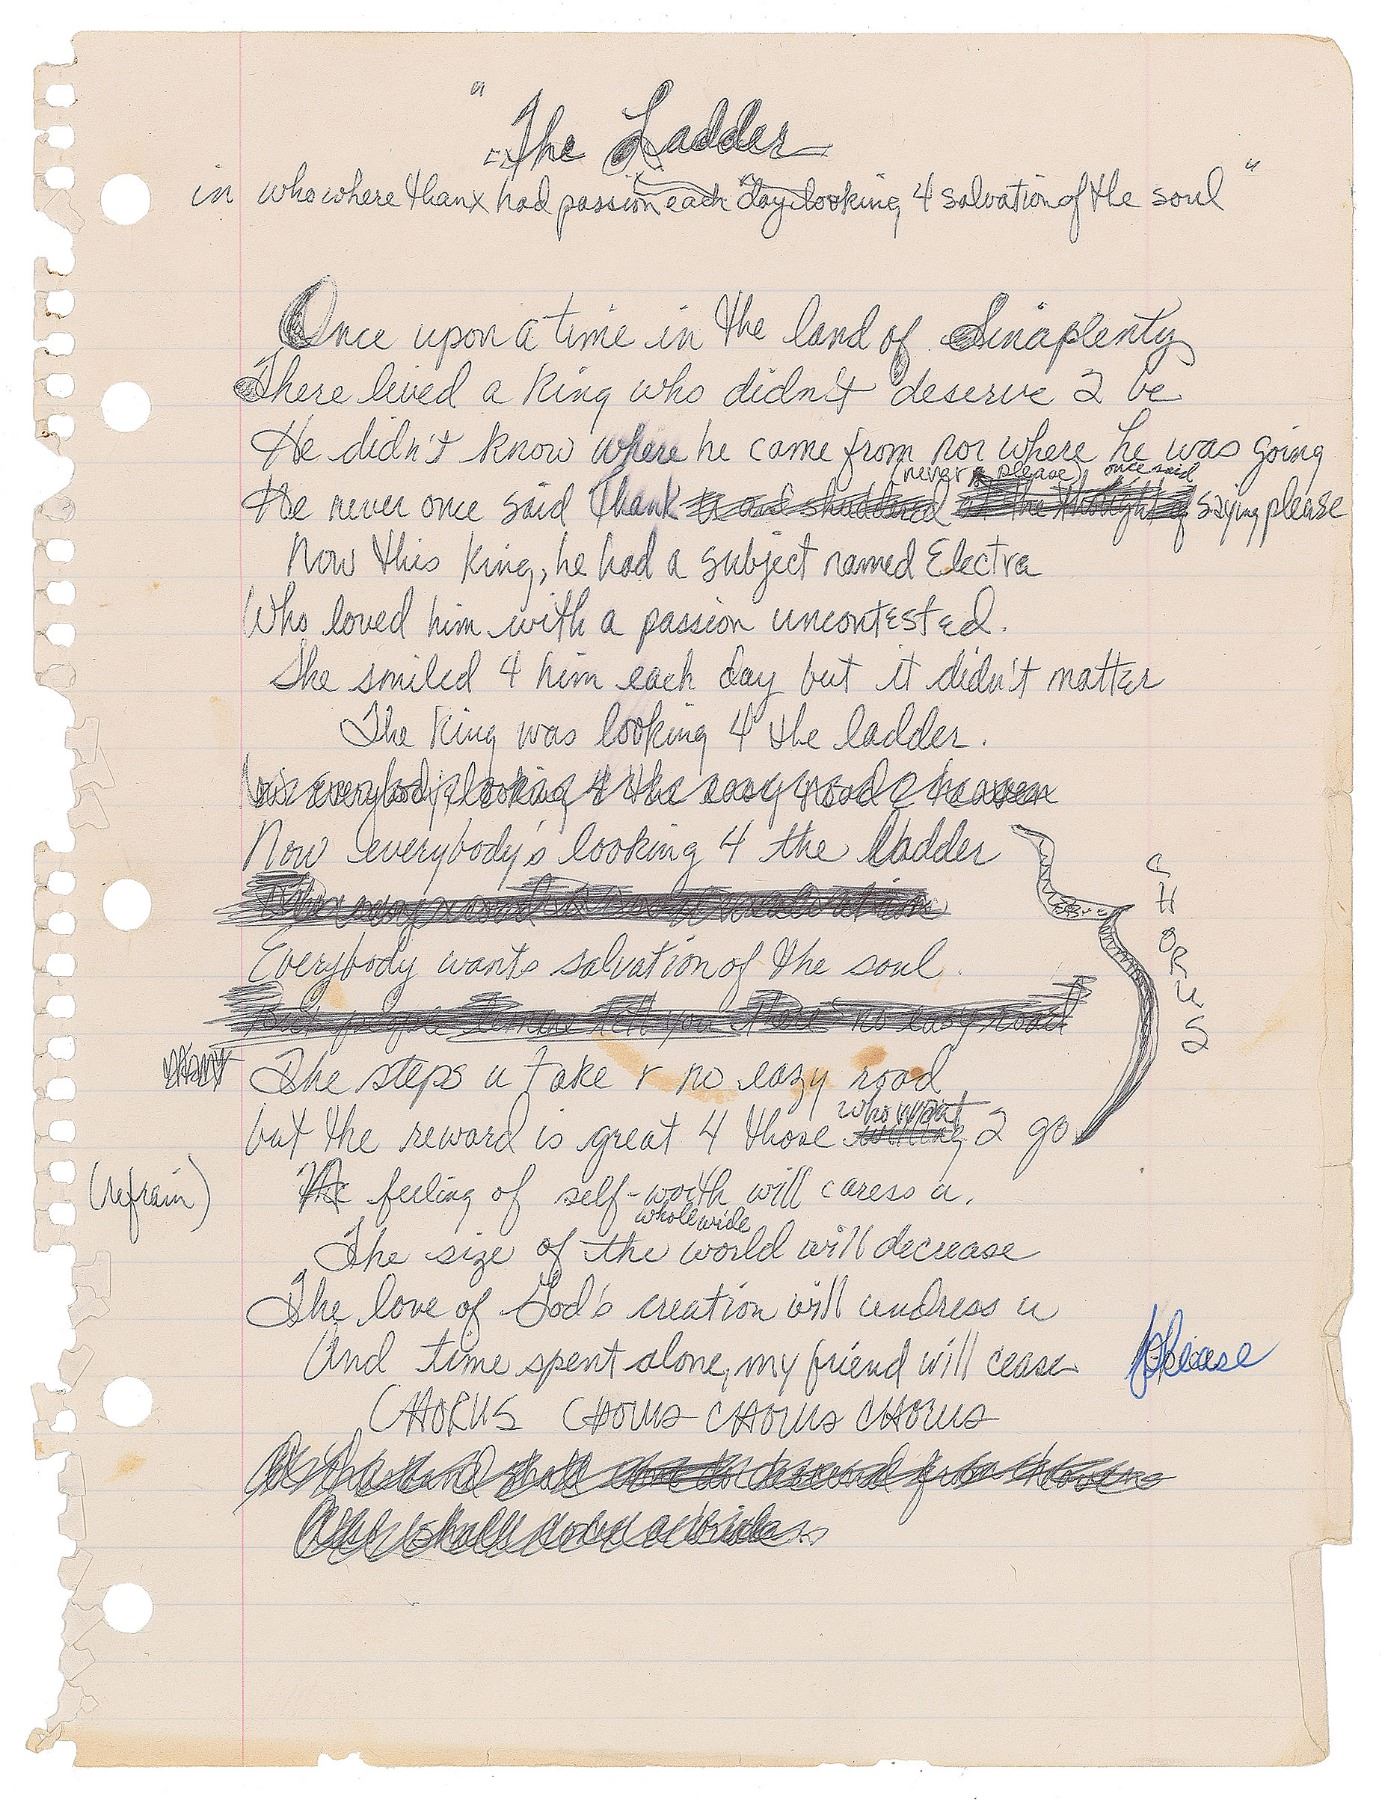 "The Ladder
in who where thanx had passion each day looking 4 salvation of the soul"
Once upon a time in the land of Sinaplenty
There lived a King who didn't deserve 2 be
He didn't know where he came from nor where he was going
(never please) once said
He never once said Thank saying please
Now this King, he had a subject named Electra
Who loved him with a passion uncontested.
She smiled 4 him each day but it didn't matter
The King was looking 4 the ladder.
everybody's looking 4 the easy road 2 heaven
Now everybody's looking 4 the ladder
CHORUS
Everybody wants salvation of the soul.
no easy road
The steps u take r no eazy road
who want
but the reward is great 4 those willing 2 go
(refrain)
The feeling of self-worth will caress u.
whole wide
The size of the world will decrease
The love of God's creation will undress u
And time spent alone, my friend will cease
please
CHORUS CHORUS CHORUS CHORUS